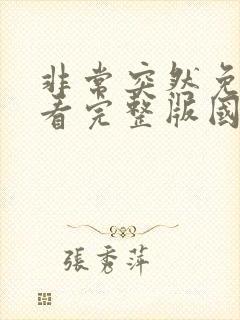 非常突然免
看完整版國
張秀萍